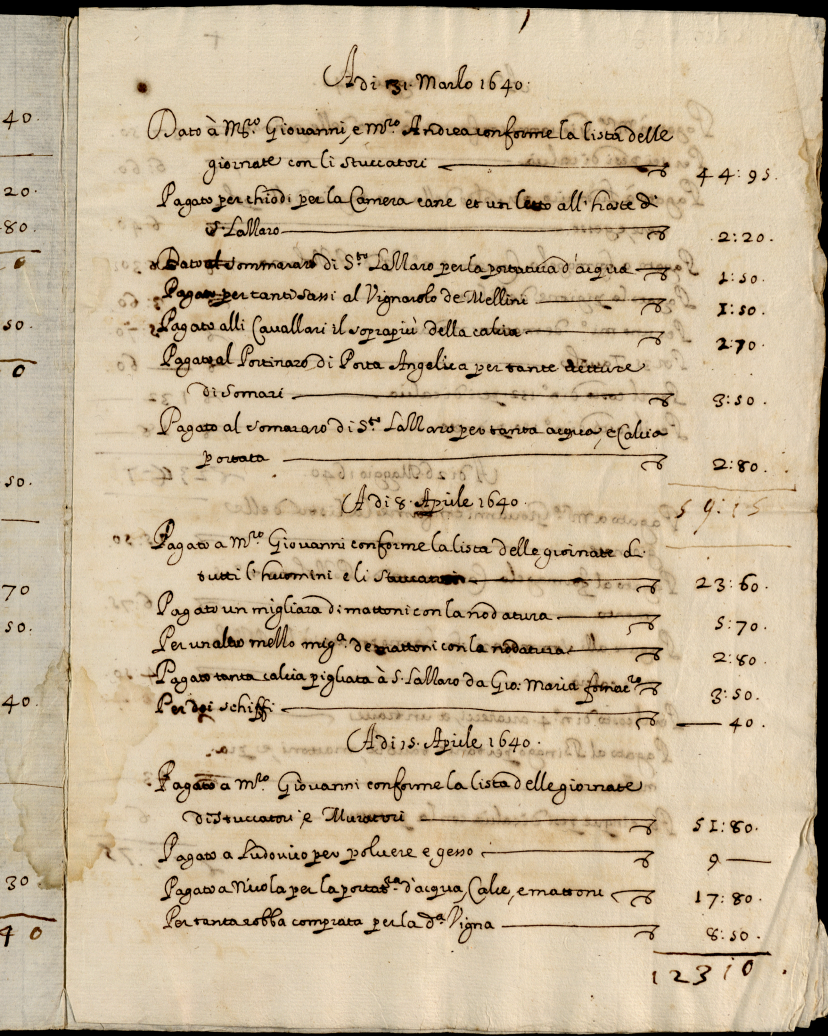 40.
20.
80.
0
50.
0
50.
70
50.
40.
30
40
Adi 31 Marzo 1640.
Dato à M.ro Giovanni, e M.ro Andrea conforme la lista delle
giornate con li stuccatori 44:95.
Pagato per chiodi per la Camera et un letto all'
S. Lazzaro 2:20.
Dato al sommararo di S.to Lazzaro per la portatura d'acqua 1:50.
Pagato per tanti sassi al Vignarolo de Mellini 1:50.
Pagato alli Cavallari il soprapiù della calcia 2:70
Pagato al Portinaro di Porta Angelica per tante vetture
di somari 3:50.
Pagato al somararo di S.to Lazzaro per tanta acqua, e Calcia
portata 2:80.
59:15
Adi 8. Aprile 1640.
Pagato a M.ro Giovanni conforme la lista delle giornate di
tutti l'huomini e li stuccatori 23:60.
Pagato un migliara di mattoni con la nodatura 5:70.
Per un altro mezzo mig.a de mattoni con la nodatura 2:80.
Pagato tanta calcia pigliata à S. Lazzaro da Gio: Maria fornac.ro 3:50.
Per doi schiffi — 40.
Adi 15. Aprile 1640.
Pagato a M.ro Giovanni conforme la lista delle giornate
di stuccatori, e Muratori 51:80.
Pagato a Ludovico per polvere e gesso 9 —
Pagato a Nicola per la portat.ra d'acqua, Calce, e mattoni 17:80.
Per tanta robba comprata per la d.a Vigna 8:50.
12310